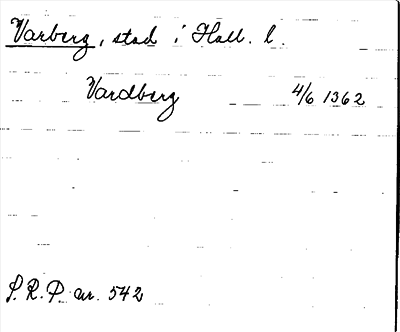 Varberg, stad i Hall. l.
Vardberg 4/6 1362
S.R.P. nr. 542